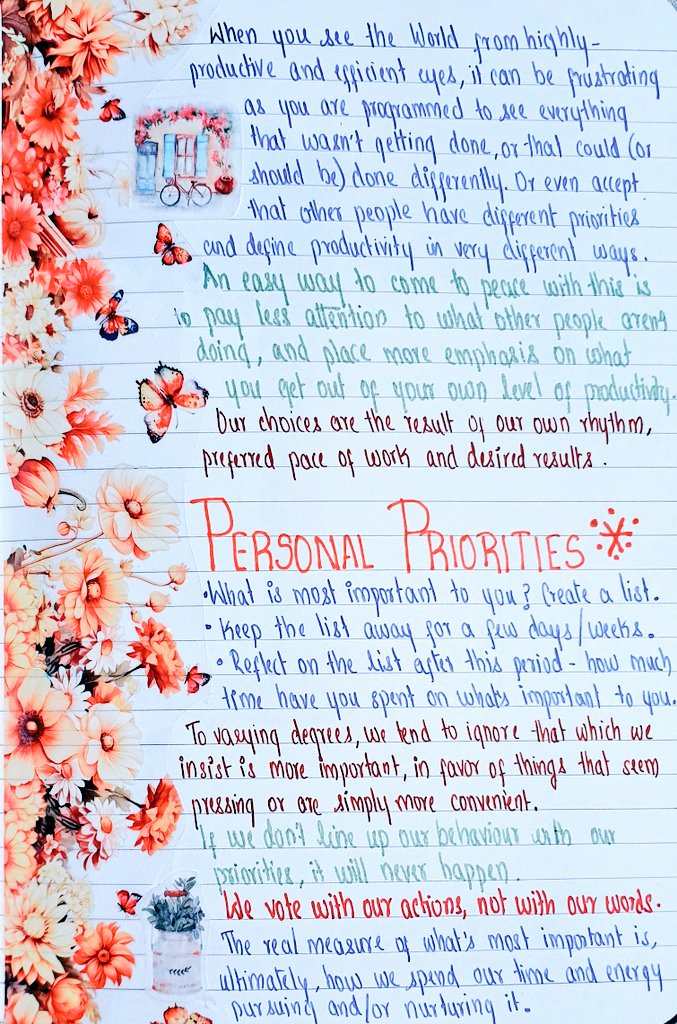 When you see the World from highly-
productive and efficient eyes, it can be frustrating
as you are programmed to see everything
that wasn't getting done, or that could (or
should be) done differently. Or even accept
that other people have different priorities
and define productivity in very different ways.
An easy way to come to peace with this is
to pay less attention to what other people aren't
doing, and place more emphasis on what
you get out of your own level of productivity.
Our choices are the result of our own rhythm,
preferred pace of work and desired results.
PERSONAL PRIORITIES
• What is most important to you? Create a list.
• Keep the list away for a few days/weeks.
• Reflect on the list after this period - how much
time have you spent on whats important to you.
To varying degrees, we tend to ignore that which we
insist is more important, in favor of things that seem
pressing or are simply more convenient.
If we don't line up our behaviour with our
priorities, it will never happen.
We vote with our actions, not with our words.
The real measure of what's most important is,
ultimately, how we spend our time and energy
pursuing and/or nurturing it.